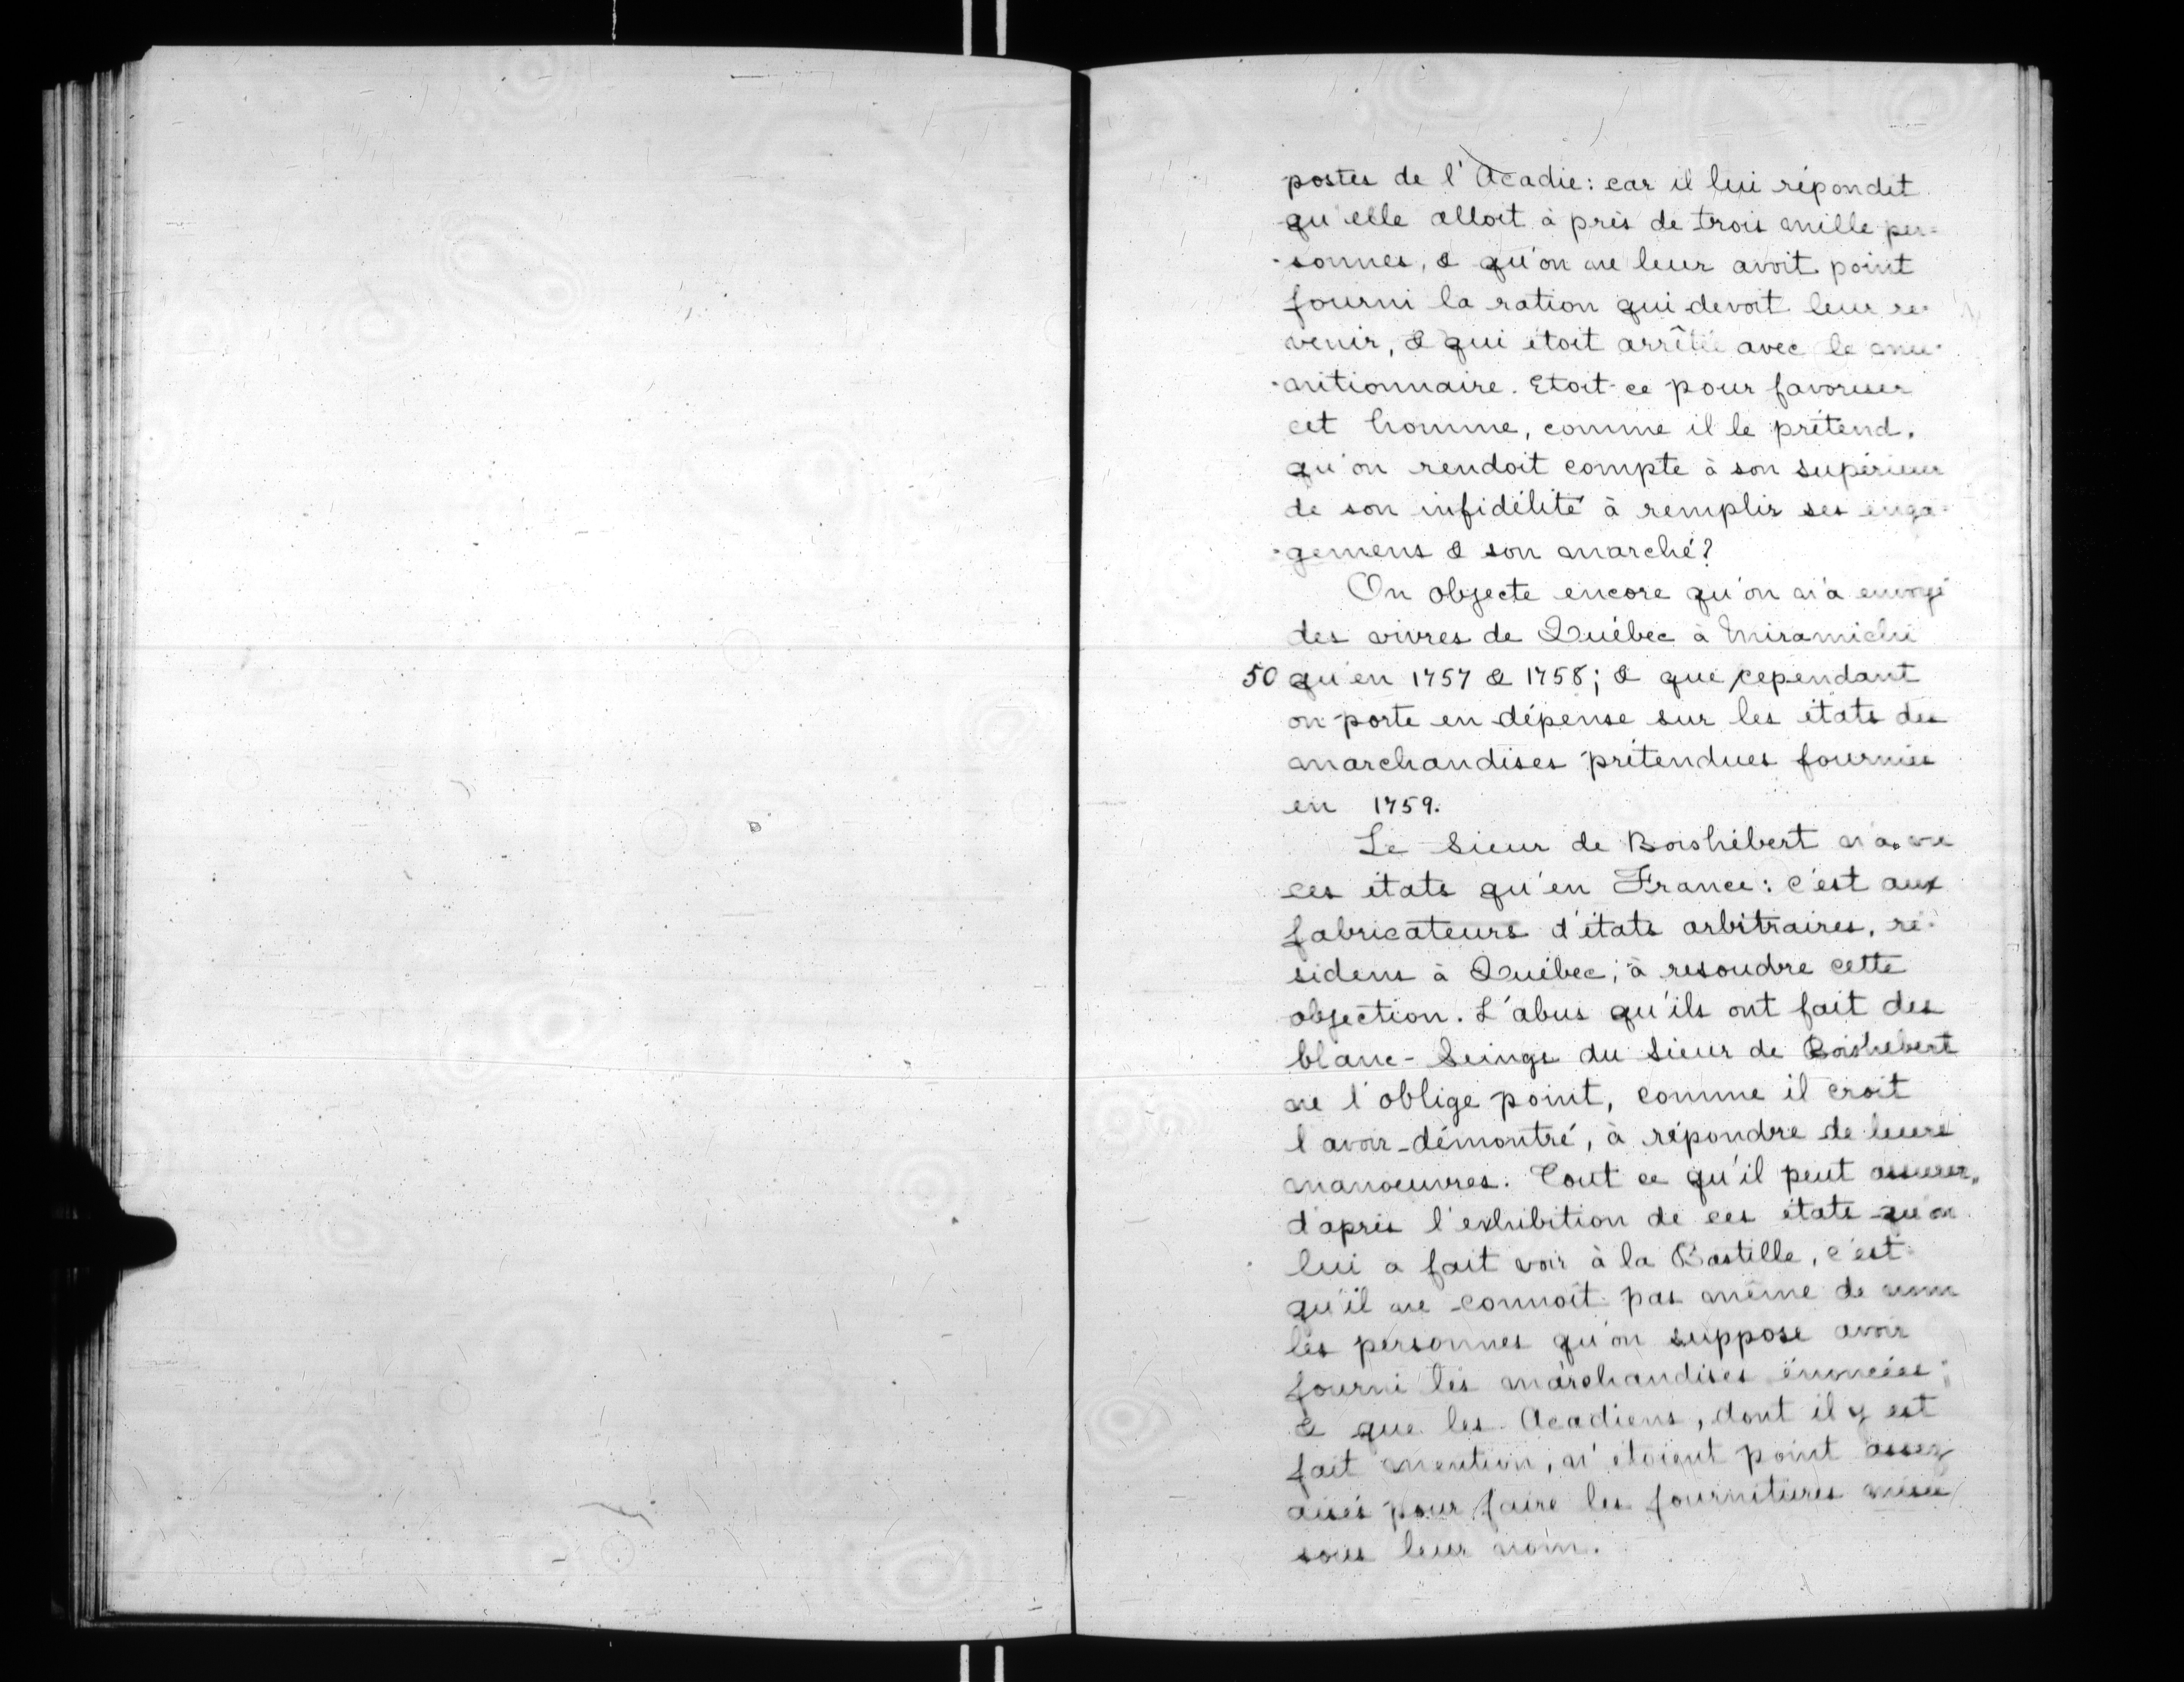 postes de l'Acadie: car il lui répondit
qu'elle alloit à près de trois mille per-
-sonnes, & qu'on ne leur avoit point
fourni la ration qui devoit leur re-
venir, & qui étoit arrêtée avec le mu-
-nitionnaire. Etoit-ce pour favoriser
cet homme, comme il le prétend,
qu'on rendoit compte à son supérieur
de son infidélité à remplir ses enga-
-gemens & son marché?
On objecte encore qu'on n'a envoyé
des vivres de Québec à Miramichi
50 qu'en 1757 & 1758; & que cependant
on porte en dépense sur les états des
marchandises prétendues fournies
en 1759.
Le Sieur de Boishébert n'a vu
ces états qu'en France: c'est aux
fabricateurs d'états arbitraires, ré-
sidens à Québec, à resoudre cette
objection. L'abus qu'ils ont fait des
blanc-Seings du Sieur de Boishébert
ne l'oblige point, comme il croit
l'avoir démontré, à répondre de leurs
manoeuvres. Tout ce qu'il peut assurer,
d'après l'exhibition de ces états qu'on
lui a fait voir à la Bastille, c'est
qu'il ne connoît pas même de nom
les personnes qu'on suppose avoir
fourni les marchandises énoncées;
& que les Acadiens, dont il y est
fait mention, n'étoient point assez
aisés pour faire les fournitures mises
sous leur nom.